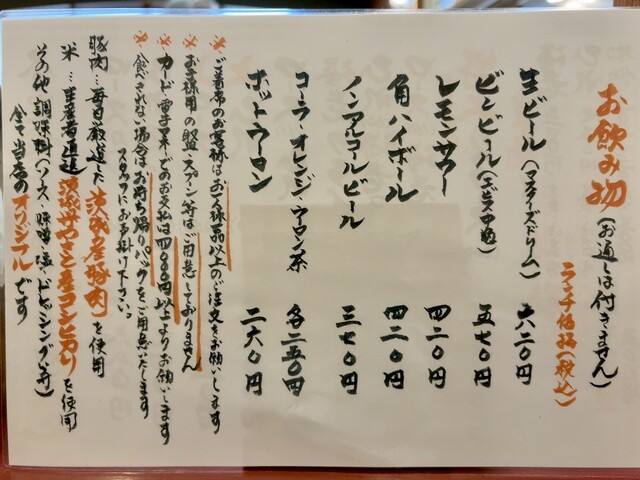 お飲み物(お通しは付きません)
ランチ価格(税込)
生ビール(マスターズドリーム) 六二〇円
ビンビール(エビス中瓶) 五七〇円
レモンサワー 四二〇円
角ハイボール 四二〇円
ノンアルコールビール 三七〇円
コーラ・オレンジ・ウーロン茶 各二五〇円
ホットウーロン 二六〇円
※ご着席のお客様はお一人様一品以上のご注文をお願いします
※お子様用の盤・スプーン等はご用意しておりません
※カード・電子マネーでのお支払は四〇〇〇円以上よりお願いします
※食べきれない場合はお持ち帰りパックをご用意いたします
スタッフにお声掛け下さい。
豚肉…毎日厳選した茨城産豚肉を使用
米…生産者直送茨城県やさと産コシヒカリを使用
その他調味料(ソース・味噌・塩・ドレッシング・辛子)
全て当店のオリジナルです